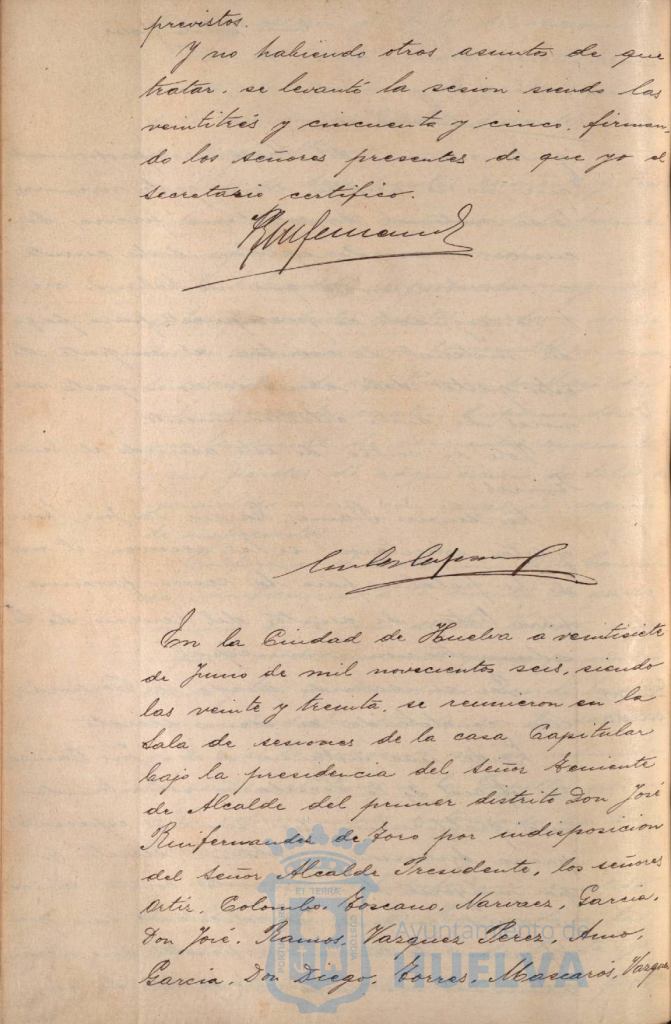 previstos.
Y no habiendo otros asuntos de que
tratar. se levantó la sesion siendo las
veintitrés y cincuenta y cinco. firman-
do los señores presentes de que yo el
secretario certifico.
En la Ciudad de Huelva a veintisiete
de Junio de mil novecientos seis, siendo
las veinte y treinta. se reunieron en la
Sala de sesiones de la casa Capitular
bajo la presidencia del señor Teniente
de Alcalde del primer distrito Don José
Ruifernandez de Toro por indisposicion
del señor Alcalde Presidente, los señores
Ortiz. Colombo. Toscano. Narvaez. Garcia.
Don José. Ramos. Vazquez Perez. Amo.
Garcia. Don Diego. Torres. Mascarós. Vazquez
Ayuntamiento de
HUELVA